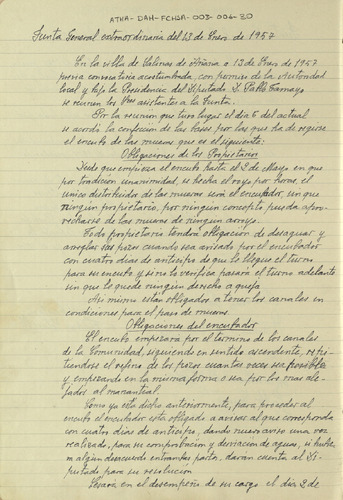 ATHA-DAH-FCHSA-003-006-30
Junta General extraordinaria del 13 de Enero de 1957
En la villa de Salinas de Añana a 13 de Enero de 1957
previa convocatoria acostumbrada, con permiso de la Autoridad
local y bajo la Presidencia del Diputado D. Pablo Tamayo
se reunen los Sres asistentes a la Junta.
Por la reunion que tuvo lugar el dia 6 del actual
se acordó la confección de las bases por las que ha de regirse
el encubo de las mueras que es el siguiente:
Obligaciones de los Propietarios
Desde que empieza el encubo hasta el 2 de Mayo en que
por tradicion inmemorial se hecha el royo por horas, el
unico distribuidor de las mueras será el encubador, sin que
ningún propietario, por ningun concepto pueda apro-
vecharse de las mueras de ningun arroyo.
Todo propietario tendrá obligación de desaguar y
arreglar sus pozos cuando sea avisado por el encubador
con cuatro dias de anticipo de que le llegue el turno
para su encubo y si no lo verifica pasará el turno adelante
sin que le quede ningun derecho a queja
Asi mismo están obligados a tener los canales en
condiciones para el paso de mueras.
Obligaciones del encubador
El encubo empezara por el termino de los canales
de la Comunidad, siguiendo en sentido ascendente, repi-
tiendose el relleno de los pozos cuantas veces sea posible
y empezando en la misma forma o sea por los mas ale-
jados al manantial.
Como ya está dicho anteriormente, para proceder al
encubo el encubador está obligado a avisar al que corresponda
con cuatro dias de anticipo, dando nuevo aviso una vez
realizado, para su comprobación y derivación de aguas, si hubie-
ra algún desacuerdo entrambas partes, darán cuenta al Di-
putado para su resolucion
Cesará en el desempeño de su cargo el dia 2 de